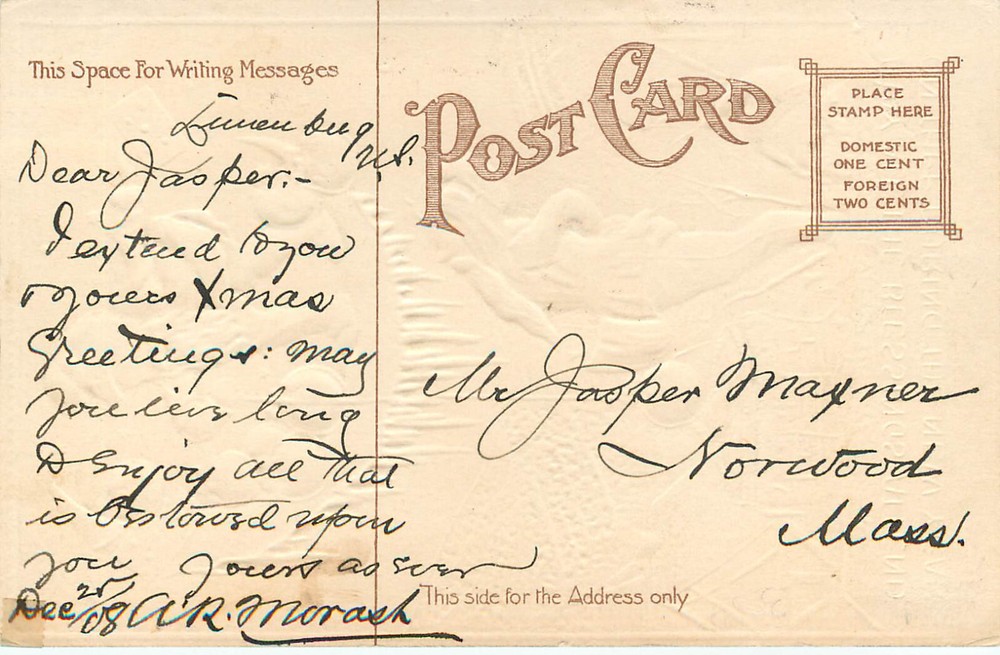 This Space For Writing Messages
Dear Jasper:-
I extend to you
& yours Xmas
Greetings: may
you live long
& Enjoy all that
is bestowed upon
you Yours as ever
Dec 25/08 A.R. Morash
POST CARD
PLACE
STAMP HERE
DOMESTIC
ONE CENT
FOREIGN
TWO CENTS
Mr Jasper
Norwood
Mass.
This side for the Address only